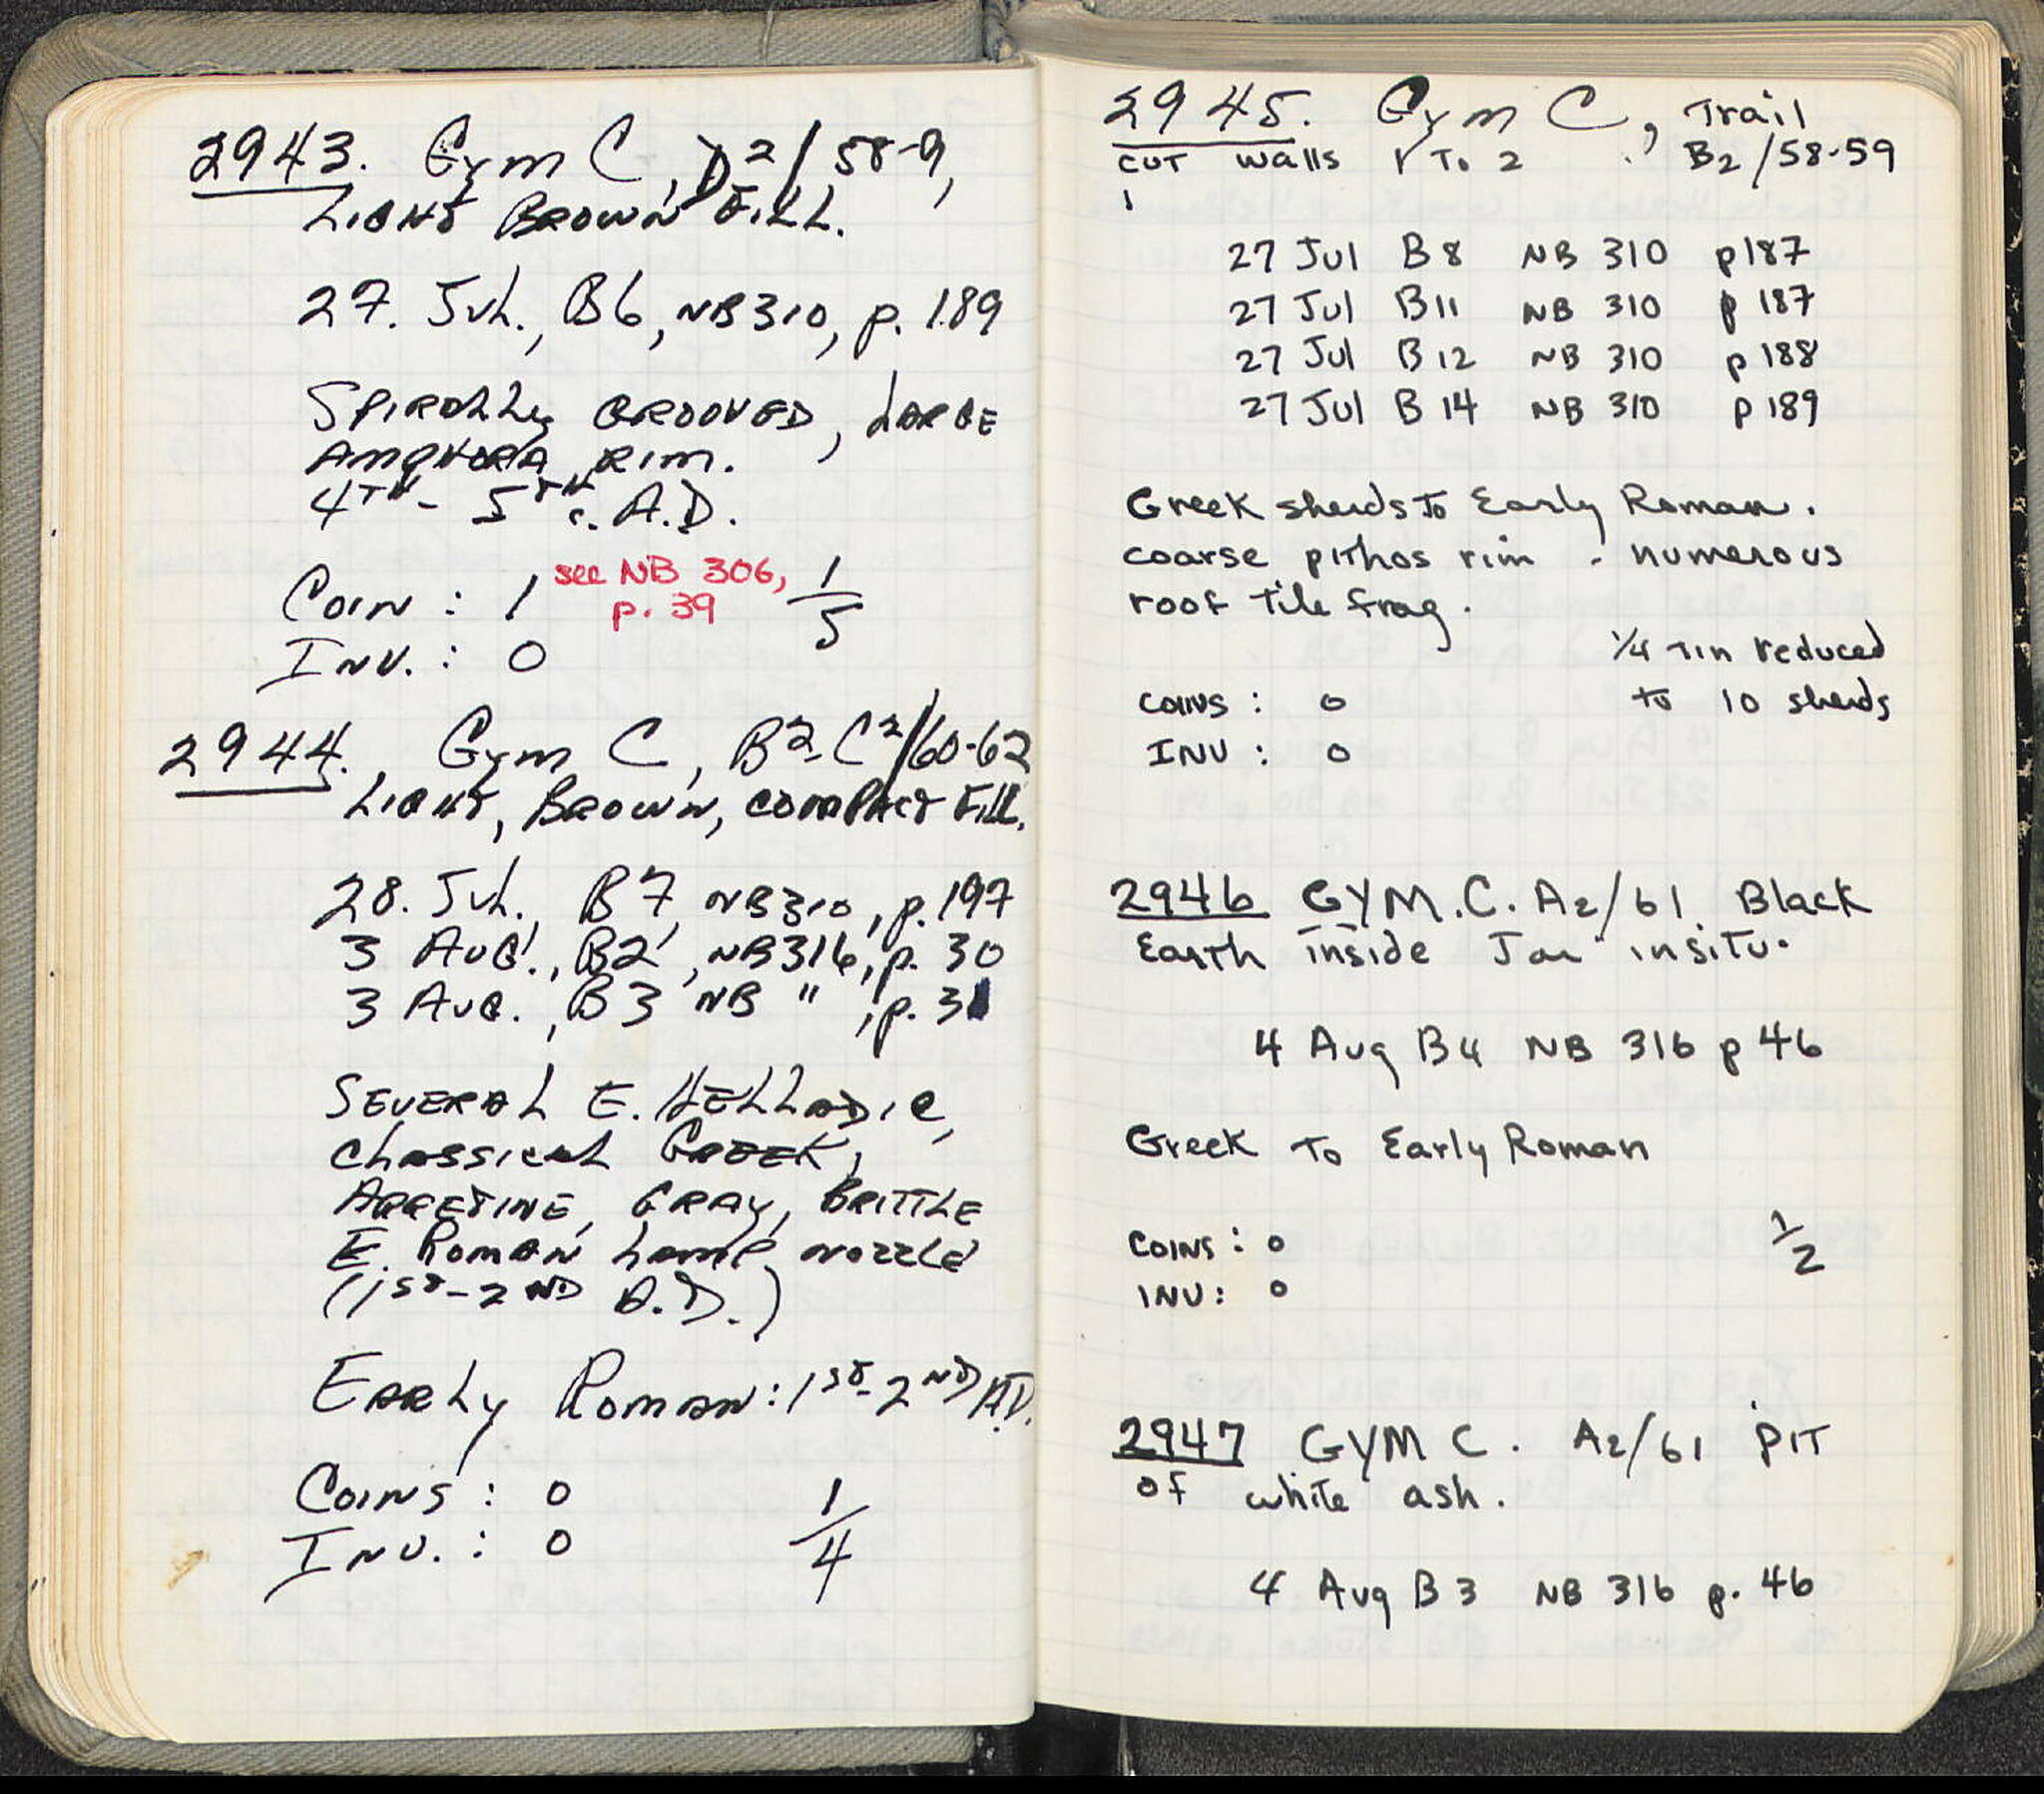 2943. Gym C, D2/58-9,
LIGHT BROWN FILL.
27. JUL., B6, NB310, p. 189
SPIRALLY GROOVED, LARGE
AMPHORA RIM.
4TH - 5TH c. A.D.
COIN : 1 see NB 306, 1/5
p. 39
INV. : 0
2944. Gym C, B2-C2/60-62
LIGHT, BROWN, COMPACT FILL.
28. JUL., B7, NB310, p. 197
3 AUG., B2, NB316, p. 30
3 AUG., B3 NB ", p. 31
SEVERAL E. HELLADIC,
CLASSICAL GREEK,
ARRETINE, GRAY, BRITTLE
E. ROMAN LAMP NOZZLE
(1ST-2ND A.D.)
EARLY ROMAN: 1ST-2ND A.D.
COINS : 0 1/4
INV. : 0
2945. Gym C, Trail
cut walls 1 To 2 B2/58-59
27 Jul B8 NB 310 p187
27 Jul B11 NB 310 p 187
27 Jul B12 NB 310 p 188
27 Jul B14 NB 310 p 189
Greek sherds To Early Roman.
coarse pithos rim . numerous
roof tile frag.
1/4 Tin reduced
COINS : 0 to 10 sherds
INV : 0
2946 GYM.C. A2/61. Black
Earth inside Jar insitu.
4 Aug B4 NB 316 p 46
Greek To Early Roman
COINS : 0 1/2
INV : 0
2947 GYM C. A2/61 PIT
of white ash.
4 Aug B3 NB 316 p. 46